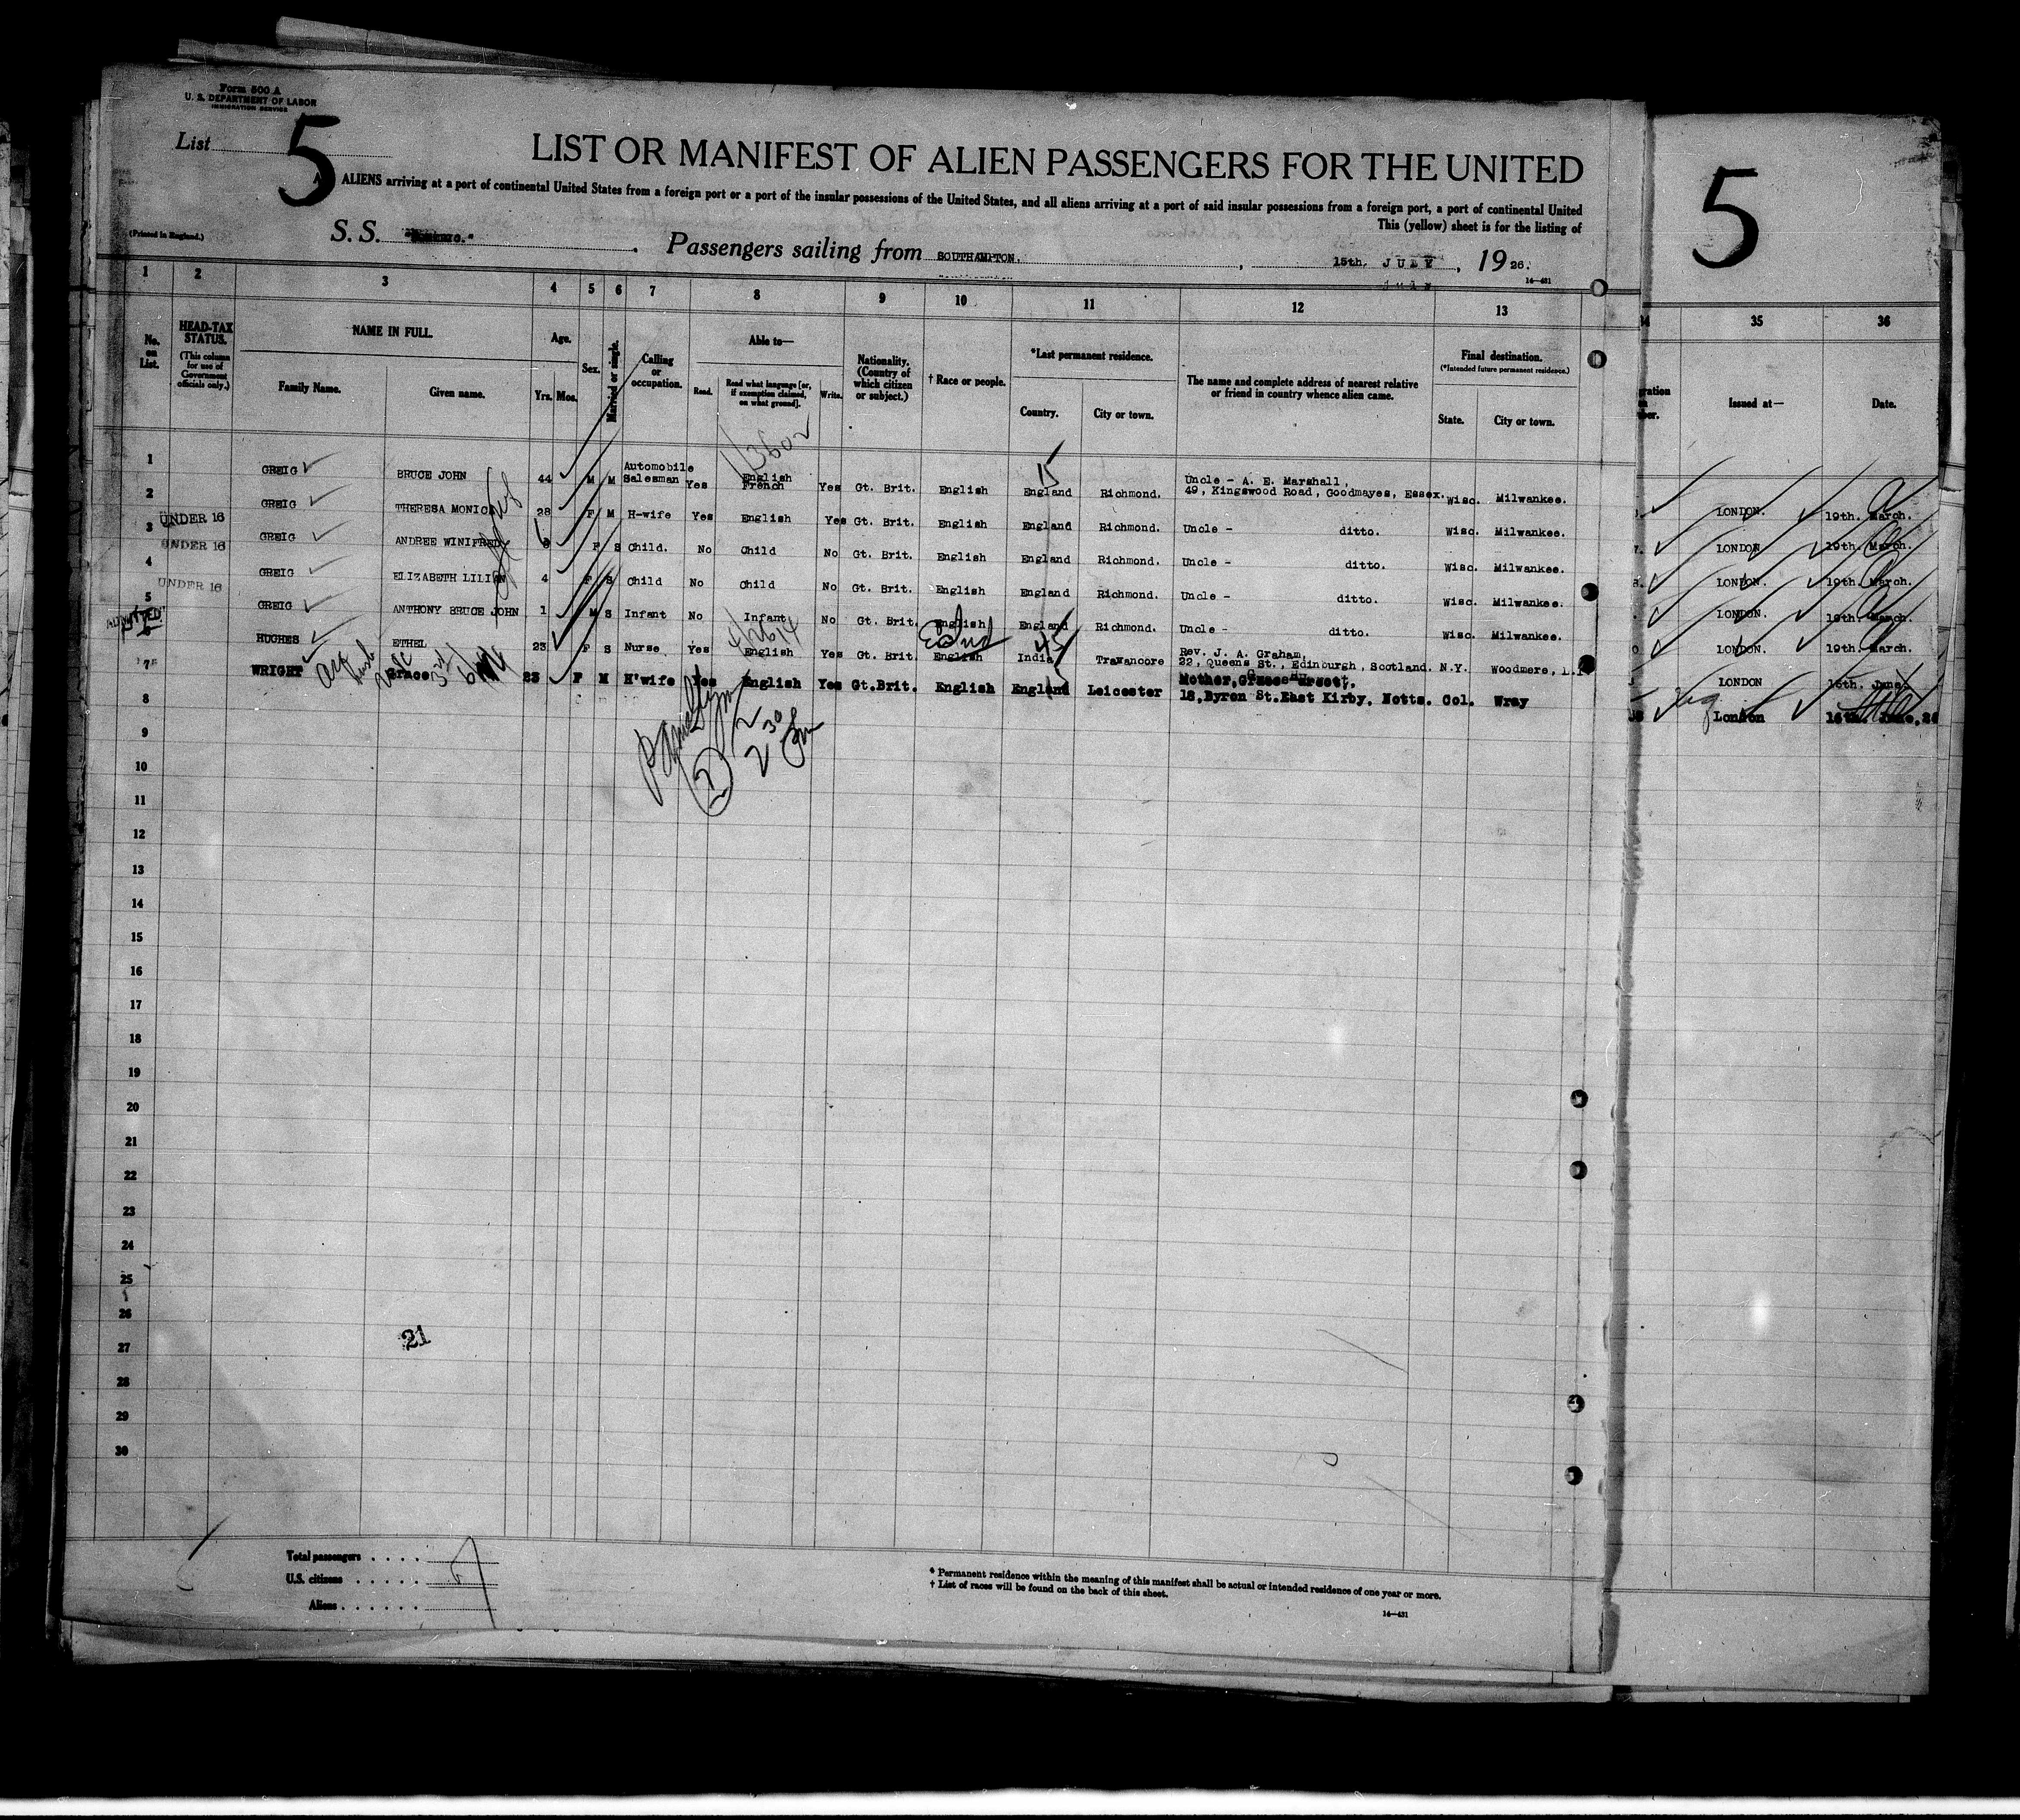 Form 500 A
U. S. DEPARTMENT OF LABOR
IMMIGRATION SERVICE
List 5
LIST OR MANIFEST OF ALIEN PASSENGERS FOR THE UNITED
ALIENS arriving at a port of continental United States from a foreign port or a port of the insular possessions of the United States, and all aliens arriving at a port of said insular possessions from a foreign port, a port of continental United
This (yellow) sheet is for the listing of
(Printed in England.)
S. S. Passengers sailing from SOUTHAMPTON. , 15th. JULY , 1926.
14—431
1 2 3 4 5 6 7 8 9 10 11 12 13
No. on List.
HEAD-TAX STATUS.
(This column for use of Government officials only.)
NAME IN FULL.
Family Name. Given name.
Age.
Yrs. Mos.
Sex.
Married or single.
Calling or occupation.
Able to—
Read. Read what language [or, if exemption claimed, on what ground]. Write.
Nationality. (Country of which citizen or subject.)
† Race or people.
*Last permanent residence.
Country. City or town.
The name and complete address of nearest relative or friend in country whence alien came.
Final destination.
(*Intended future permanent residence.)
State. City or town.
1 GREIG BRUCE JOHN 44 M M Automobile Salesman Yes English French Yes Gt. Brit. English England Richmond. Uncle - A. E. Marshall, 49, Kingswood Road, Goodmayes, Essex. Wisc. Milwankee.
2 GREIG THERESA MONICA 28 F M H-wife Yes English Yes Gt. Brit. English England Richmond. Uncle - ditto. Wisc. Milwankee.
UNDER 16 3 GREIG ANDREE WINIFRED F S Child. No Child No Gt. Brit. English England Richmond. Uncle - ditto. Wisc. Milwankee.
UNDER 16 4 GREIG ELIZABETH LILIAN 4 F S Child No Child No Gt. Brit. English England Richmond. Uncle - ditto. Wisc. Milwankee.
UNDER 16 5 GREIG ANTHONY BRUCE JOHN 1 M S Infant No Infant No Gt. Brit. English England Richmond. Uncle - ditto. Wisc. Milwankee.
ADMITTED 6 HUGHES ETHEL 23 F S Nurse Yes English Yes Gt. Brit. English India Travancore Rev. J. A. Graham, 22, Queens St., Edinburgh, Scotland. N.Y. Woodmere, L.I
7 WRIGHT Grace 23 F M H'wife Yes English Yes Gt.Brit. English England Leicester Mother, 18,Byron St.East Kirby, Notts. Col. Wray
8
9
10
11
12
13
14
15
16
17
18
19
20
21
22
23
24
25
26
27
28
29
30
21
Total passengers
U.S. citizens
Aliens
* Permanent residence within the meaning of this manifest shall be actual or intended residence of one year or more.
† List of races will be found on the back of this sheet.
14—431
5
35 36
Issued at— Date.
LONDON. 19th. March.
LONDON 19th. March.
LONDON. 19th. March.
LONDON. 19th. March.
LONDON. 19th. March.
LONDON 15th. June.
London 16th. June,26